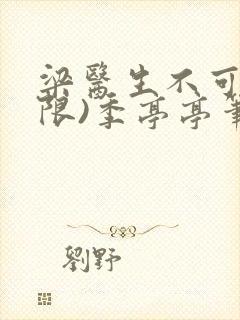 梁醫生不可
限)季亭亭筆
劉野